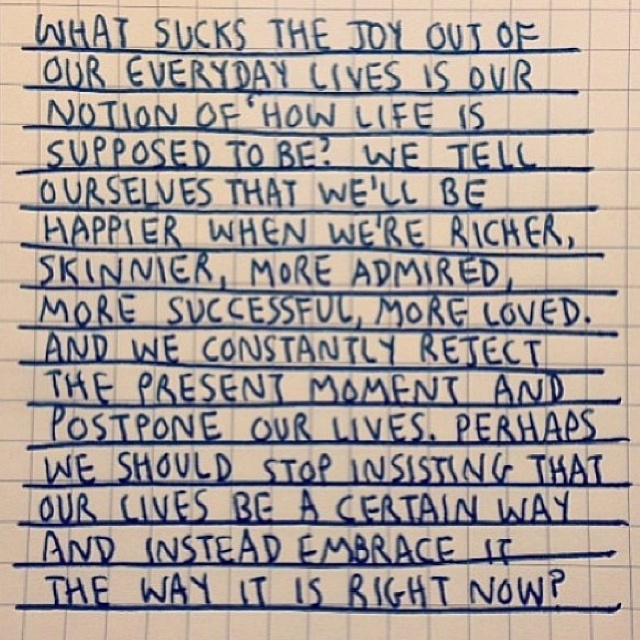 WHAT SUCKS THE JOY OUT OF
OUR EVERYDAY LIVES IS OUR
NOTION OF 'HOW LIFE IS
SUPPOSED TO BE? WE TELL
OURSELVES THAT WE'LL BE
HAPPIER WHEN WE'RE RICHER,
SKINNIER, MORE ADMIRED,
MORE SUCCESSFUL, MORE LOVED.
AND WE CONSTANTLY REJECT
THE PRESENT MOMENT AND
POSTPONE OUR LIVES. PERHAPS
WE SHOULD STOP INSISTING THAT
OUR LIVES BE A CERTAIN WAY
AND INSTEAD EMBRACE IT
THE WAY IT IS RIGHT NOW?